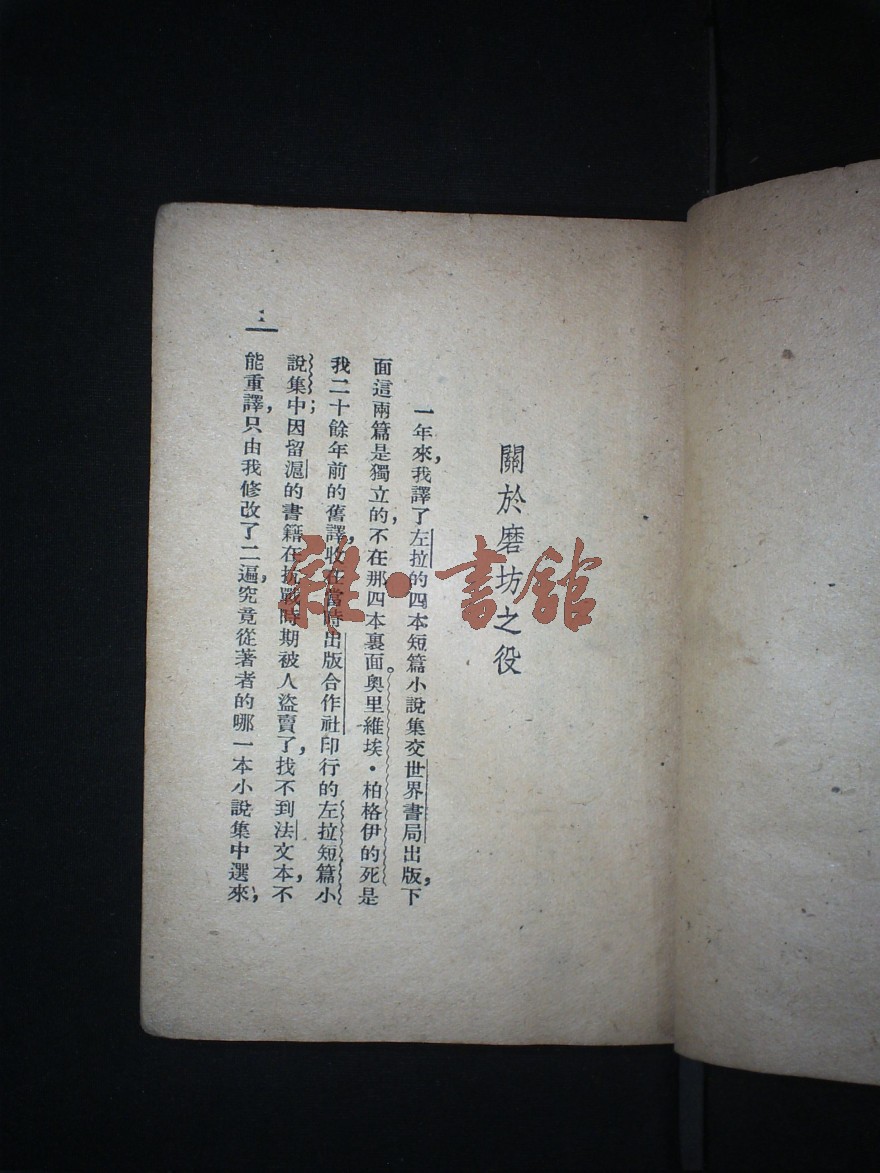 關於磨坊之役
一年來，我譯了左拉的四本短篇小說集交世界書局出版，下
面這兩篇是獨立的，不在那四本裏面。奧里維埃·柏格伊的死是
我二十餘年前的舊譯，收在當時出版合作社印行的左拉短篇小
說集中；因留滬的書籍在抗戰時期被人盜賣了，找不到法文本，不
能重譯，只由我修改了二遍，究竟從著者的哪一本小說集中選來，
雜·書館